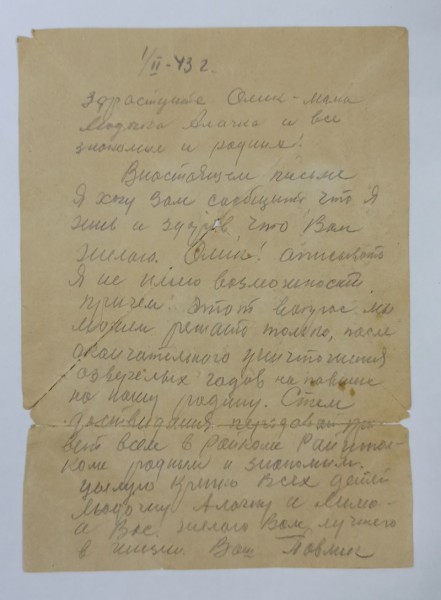 1/II-43 г.
Здраствуйте Олик - мама
Людочка Алочка и все
знакомые и родные!
Внастоящем письме
Я хочу Вам сообщить что Я
жив и здоров, что Вам
желаю. Олик! описывать
Я не имею возможности
причем этот вопрос мы
можем решать только, после
окончательного уничтожения
озверелых гадов напавших
на нашу родину. Стем
досвидания передавай при
вет всем в Райкоме Райиспол-
коме родным и знакомым.
целую крепко Всех детей
Людочку Алочку и
а Вас. желаю Вам лучшего
в жизни Ваш